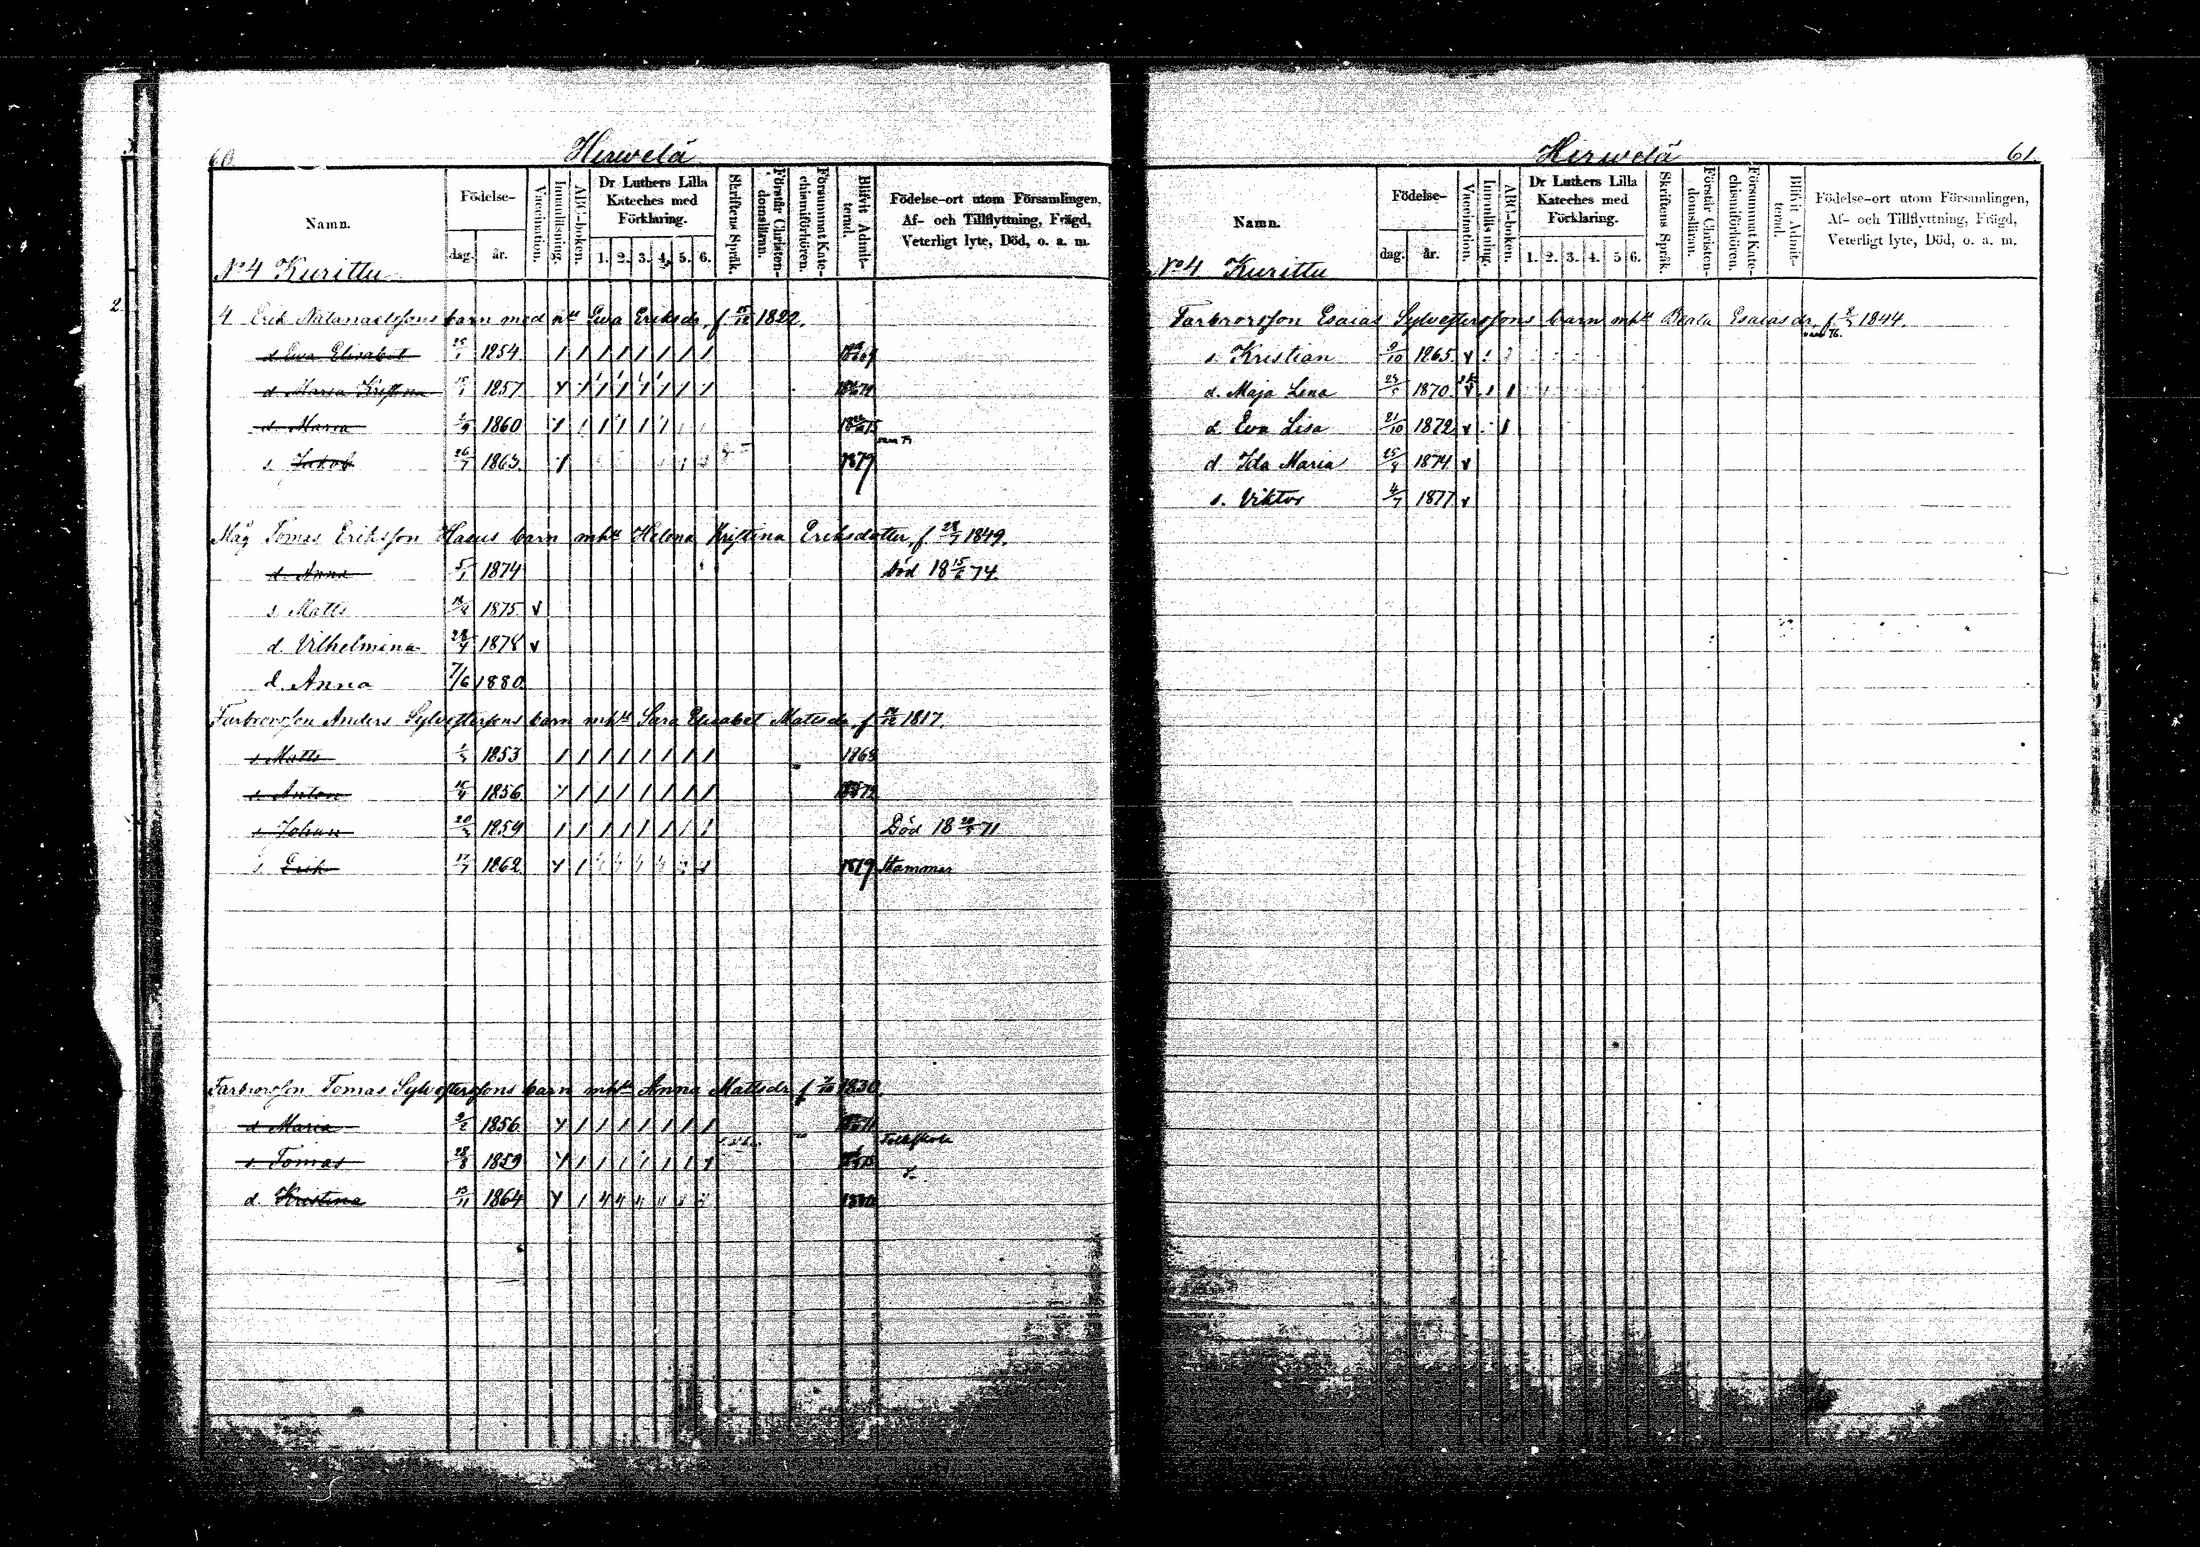 60 Hirvelä
Namn. Födelse- dag. år. Vaccination. Innanläsning. ABC-boken. Dr Luthers Lilla Kateches med Förklaring. 1. 2. 3. 4. 5. 6. Skriftens Språk. Förstår Christendomslärn. Försummat Katechismiförhören. Blifvit Admitterad. Födelse-ort utom Församlingen, Af- och Tillflyttning, Frägd, Veterligt lyte, Död, o. a. m.
No 4 Kurittu
4 Erik Natanaelssons barn med Ewa Eriksdr, f 1822.
d Ewa Elisabet 1854 69
d Maria 1857
d. Maria 1860 75
s. Jakob 26/7 1863. 1879
Måg Tomas Eriksson barn mhu Helena Kristina Eriksdotter, f 1849.
d. Anna 5/1 1874 Död 18 15/6 74.
s Matts 1875 v
d. Vilhelmina 1878 v
d. Anna 7/6 1880
Farbrorsson Anders Sylvesterssons barn mhu Sara Elisabet Matsdr, f 1817.
s Matts 1853 1868
s Anton 1856 72
s Johan 1859 Död 18 71
s. Erik 1862 1879 Stammar
Farbrorsson Tomas Sylvesterssons barn mhu Anna Mattsdr f 1830.
d Maria 1856 71
Folkskola
s. Tomas 1859
d. Kristina 1864 1880
Hirvelä 61.
Namn. Födelse- dag. år. Vaccination. Innanläsning. ABC-boken. Dr Luthers Lilla Kateches med Förklaring. 1. 2. 3. 4. 5 6. Skriftens Språk. Förstår Christendomslärn. Försummat Katechismiförhören. Blifvit Admitterad. Födelse-ort utom Församlingen, Af- och Tillflyttning, Frägd, Veterligt lyte, Död, o. a. m.
No 4 Kurittu
Farbrorsson Esaias Sylvesterssons barn mhu Beata Esaiasdr, f 1844.
s. Kristian 9/10 1865. v
d. Maja Lena 1870. v
d. Eva Lisa 21/10 1872 v
d. Ida Maria 1874 v
s. Viktor 4/7 1877 v